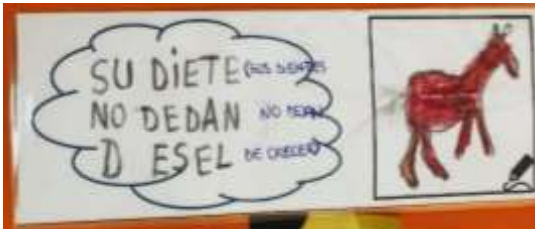 SU DIETE (SUS DIENTES
NO DEDAN NO DEJAN
D ESEL DE CRECER)